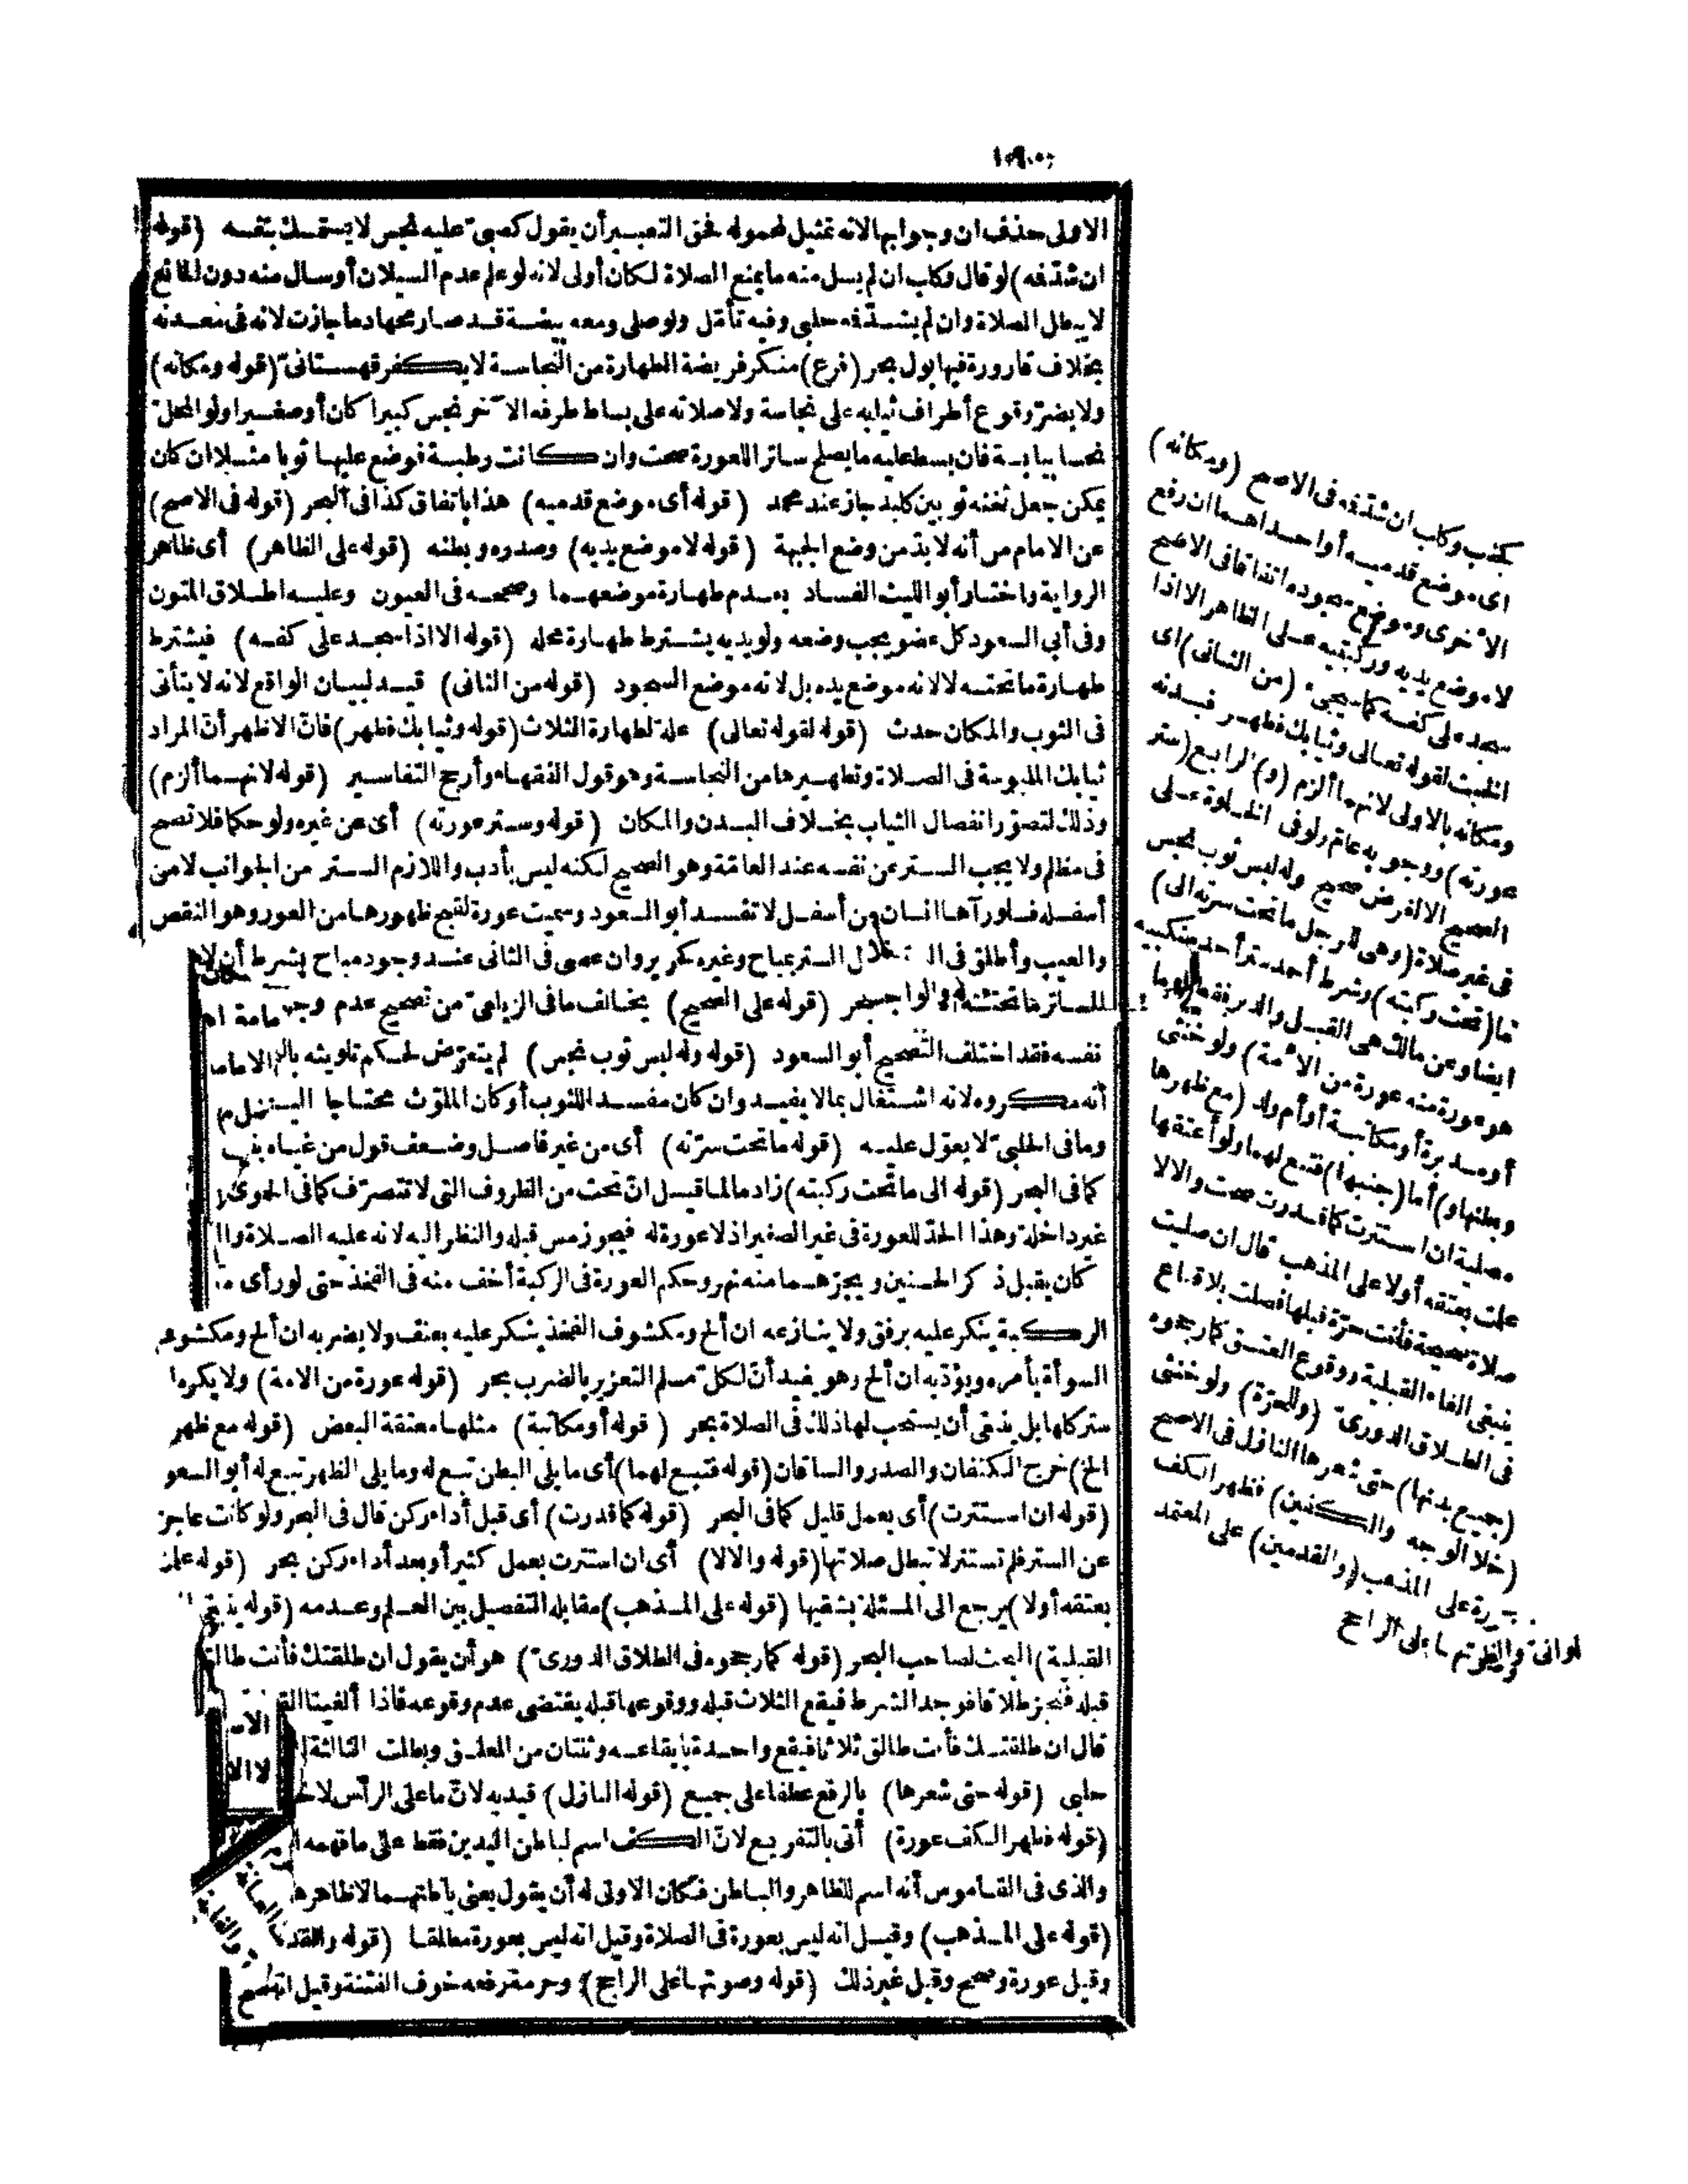 الاولى حذف ان وجوابها لانه تمثيل لمحموله فحق التعبير أن يقول كصبى عليه نجس لا يستمسك بنفسه (قوله
ان شد فمه) لو قال وكلب ان لم يسل منه ما يمنع الصلاة لكان أولى لانه لو علم عدم السيلان أو سال منه دون المانع
لا يبطل الصلاة وان لم يشد فمه حلبى وفيه تأمل ولو صلى ومعه بيضة قد صار محها دما جازت لانه فى معدنه
بخلاف قارورة فيها بول بحر (فرع) منكر فريضة الطهارة من النجاسة لا يكفر قهستانى (قوله ومكانه)
ولا يضر وقوع أطراف ثيابه على نجاسة ولا صلاته على بساط طرفه الآخر نجس كبيرا كان أو صغيرا ولو المحل
نجسا بيابسة فان بسط عليه ما يصلح ساترا للعورة صحت وان كانت رطبة فوضع عليها ثوبا مثلا ان كان
يمكن جعل ثخنه ثوبين كلبد جاز عند محمد (قوله أى موضع قدميه) هذا باتفاق كذا فى البحر (قوله فى الاصح)
عن الامام من أنه لا بد من وضع الجبهة (قوله لا موضع يديه) وصدره وبطنه (قوله على الظاهر) أى ظاهر
الرواية واختار أبو الليث الفساد بعدم طهارة موضعهما وصححه فى العيون وعليه اطلاق المتون
وفى أبى السعود كل عضو يجب وضعه ولو يديه يشترط طهارة محله (قوله الا اذا سجد على كفه) فيشترط
طهارة ما تحته لا لانه موضع يده بل لانه موضع السجود (قوله من الثانى) قيد لبيان الواقع لانه لا يتأتى
فى الثوب والمكان حدث (قوله لقوله تعالى) علة لطهارة الثلاث (قوله وثيابك فطهر) فان الاظهر أن المراد
ثيابك الملبوسة فى الصلاة وتطهيرها من النجاسة وهو قول الفقهاء وأرجح التفاسير (قوله لانهما ألزم)
وذلك لتصور انفصال الثياب بخلاف البدن والمكان (قوله وستر عورته) أى عن غيره ولو حكما فلا تصح
فى مظلم ولا يجب الستر عن نفسه عند العامة وهو الصحيح لكنه ليس بأدب واللازم الستر من الجوانب لا من
أسفله فلو رآها انسان من أسفل لا تفسد أبو السعود وسميت عورة لقبح ظهورها من العور وهو النقص
والعيب وأطلق فى الستر بمباح وغيره كحرير وان عصى فى الثانى عند وجود مباح بشرط أن لا
للساتر ما تحته بحر (قوله على الصحيح) يخالف ما فى الزيلعى من تصحيح عدم وجـ
نفسه فقد اختلف التصحيح أبو السعود (قوله وله لبس ثوب نجس) لم يتعرض لحكم تلويثه بالـ
أنه مكروه لانه اشتغال بما لا يفيد وان كان مفسد الثوب أو كان الملوث محتاجا اليه
وما فى الحلبى لا يعول عليه (قوله ما تحت سرته) أى من غير فاصل وضعف قول من غياه
كما فى البحر (قوله الى ما تحت ركبته) زاد ما لما قيل ان تحت من الظروف التى لا تتصرف كما فى الحموى
غير داخلة وهذا الحد للعورة فى غير الصغير اذ لا عورة له فيجوز مس قبله والنظر اليه لانه عليه الصلاة والـ
كان يقبل ذكر الحسنين ويجرهما منه نهر وحكم العورة فى الركبة أخف منه فى الفخذ حتى لو رأى
الركبة ينكر عليه برفق ولا ينازعه ان ألح ومكشوف الفخذ ينكر عليه بعنف ولا يضربه ان ألح ومكشوف
السوأة يأمره ويؤدبه ان ألح وهو يفيد أن لكل مسلم التعزير بالضرب بحر (قوله عورة من الامة) ولا يكره
ستر كلها بل ينبغى أن يستحب لها ذلك فى الصلاة بحر (قوله أو مكاتبة) مثلها معتقة البعض (قوله مع ظهر
الخ) خرج الكتفان والصدر والساقان (قوله فتبع لهما) أى ما يلى البطن تبع له وما يلى الظهر تبع له أبو السعو
(قوله ان استترت) أى بعمل قليل كما فى البحر (قوله كما قدرت) أى قبل أداء ركن قال فى البحر ولو كانت عاجز
عن الستر فلم تستتر لا تبطل صلاتها (قوله والا لا) أى ان استترت بعمل كثير أو بعد أداء ركن بحر (قوله علمت
بعتقه أولا) يرجع الى المسئلة بشقيها (قوله على المذهب) مقابله التفصيل بين العلم وعدمه (قوله ينبغى
القبلية) البحث لصاحب البحر (قوله كما رجحوه فى الطلاق الدورى) هو أن يقول ان طلقتك فأنت طالق
قبله فنجز طلاقا فوجد الشرط فيقع الثلاث قبله ووقوعها قبله يقتضى عدم وقوعه فاذا ألغينا القـ
قال ان طلقتك فأنت طالق ثلاثا فيقع واحدة بايقاعه وثنتان من المعلق وبطلت الثالثة
حلبى (قوله حتى شعرها) بالرفع عطفا على جميع (قوله النازل) قيد به لان ما على الرأس لا
(قوله فظهر الكف عورة) أتى بالتفريع لان الكف اسم لباطن اليدين فقط على ما فهمه
والذى فى القاموس أنه اسم للظاهر والباطن فكان الاولى له أن يقول يعنى باطنهما لا ظاهرهـ
(قوله على المذهب) وقيل انه ليس بعورة فى الصلاة وقيل انه ليس بعورة مطلقا (قوله والقد
وقيل عورة وصحح وقيل غير ذلك (قوله وصوتها على الراجح) وحرمة رفعه خوف الفتنة وقيل
وكلب ان شد فمه فى الاصح (ومكانه)
اى موضع قدميه أو احداهما ان رفع
الاخرى وموضع سجوده اتفاقا فى الاصح
لا موضع يديه وركبتيه على الظاهر الا اذا
سجد على كفه كما سيجىء (من الثانى) اى
الخبث لقوله تعالى وثيابك فطهر فبدنه
ومكانه بالاولى لانهما ألزم (و) الرابع (ستر
عورته) ووجوبه عام ولو فى الخلوة على
الصحيح الا لغرض صحيح وله لبس ثوب نجس
فى غير صلاة (وهى للرجل ما تحت سرته الى)
ما (تحت ركبته) وشرط أحمد ستر أحد منكبيه
ايضا وعن مالك هى القبل والدبر فقط (وما
هو عورة منه عورة من الامة) ولو خنثى
أو مدبرة أو مكاتبة أو أم ولد (مع ظهرها
وبطنها و) أما (جنبها) فتبع لهما ولو أعتقها
مصلية ان استترت كما قدرت صحت والا لا
علمت بعتقه أو لا على المذهب قال ان صليت
صلاة صحيحة فأنت حرة قبلها فصلت بلا قناع
ينبغى الغاء القبلية ووقوع العتق كما رجحوه
فى الطلاق الدورى (وللحرة) ولو خنثى
(جميع بدنها) حتى شعرها النازل فى الاصح
(خلا الوجه والكفين) فظهر الكف
عورة على المذهب (والقدمين) على المعتمد